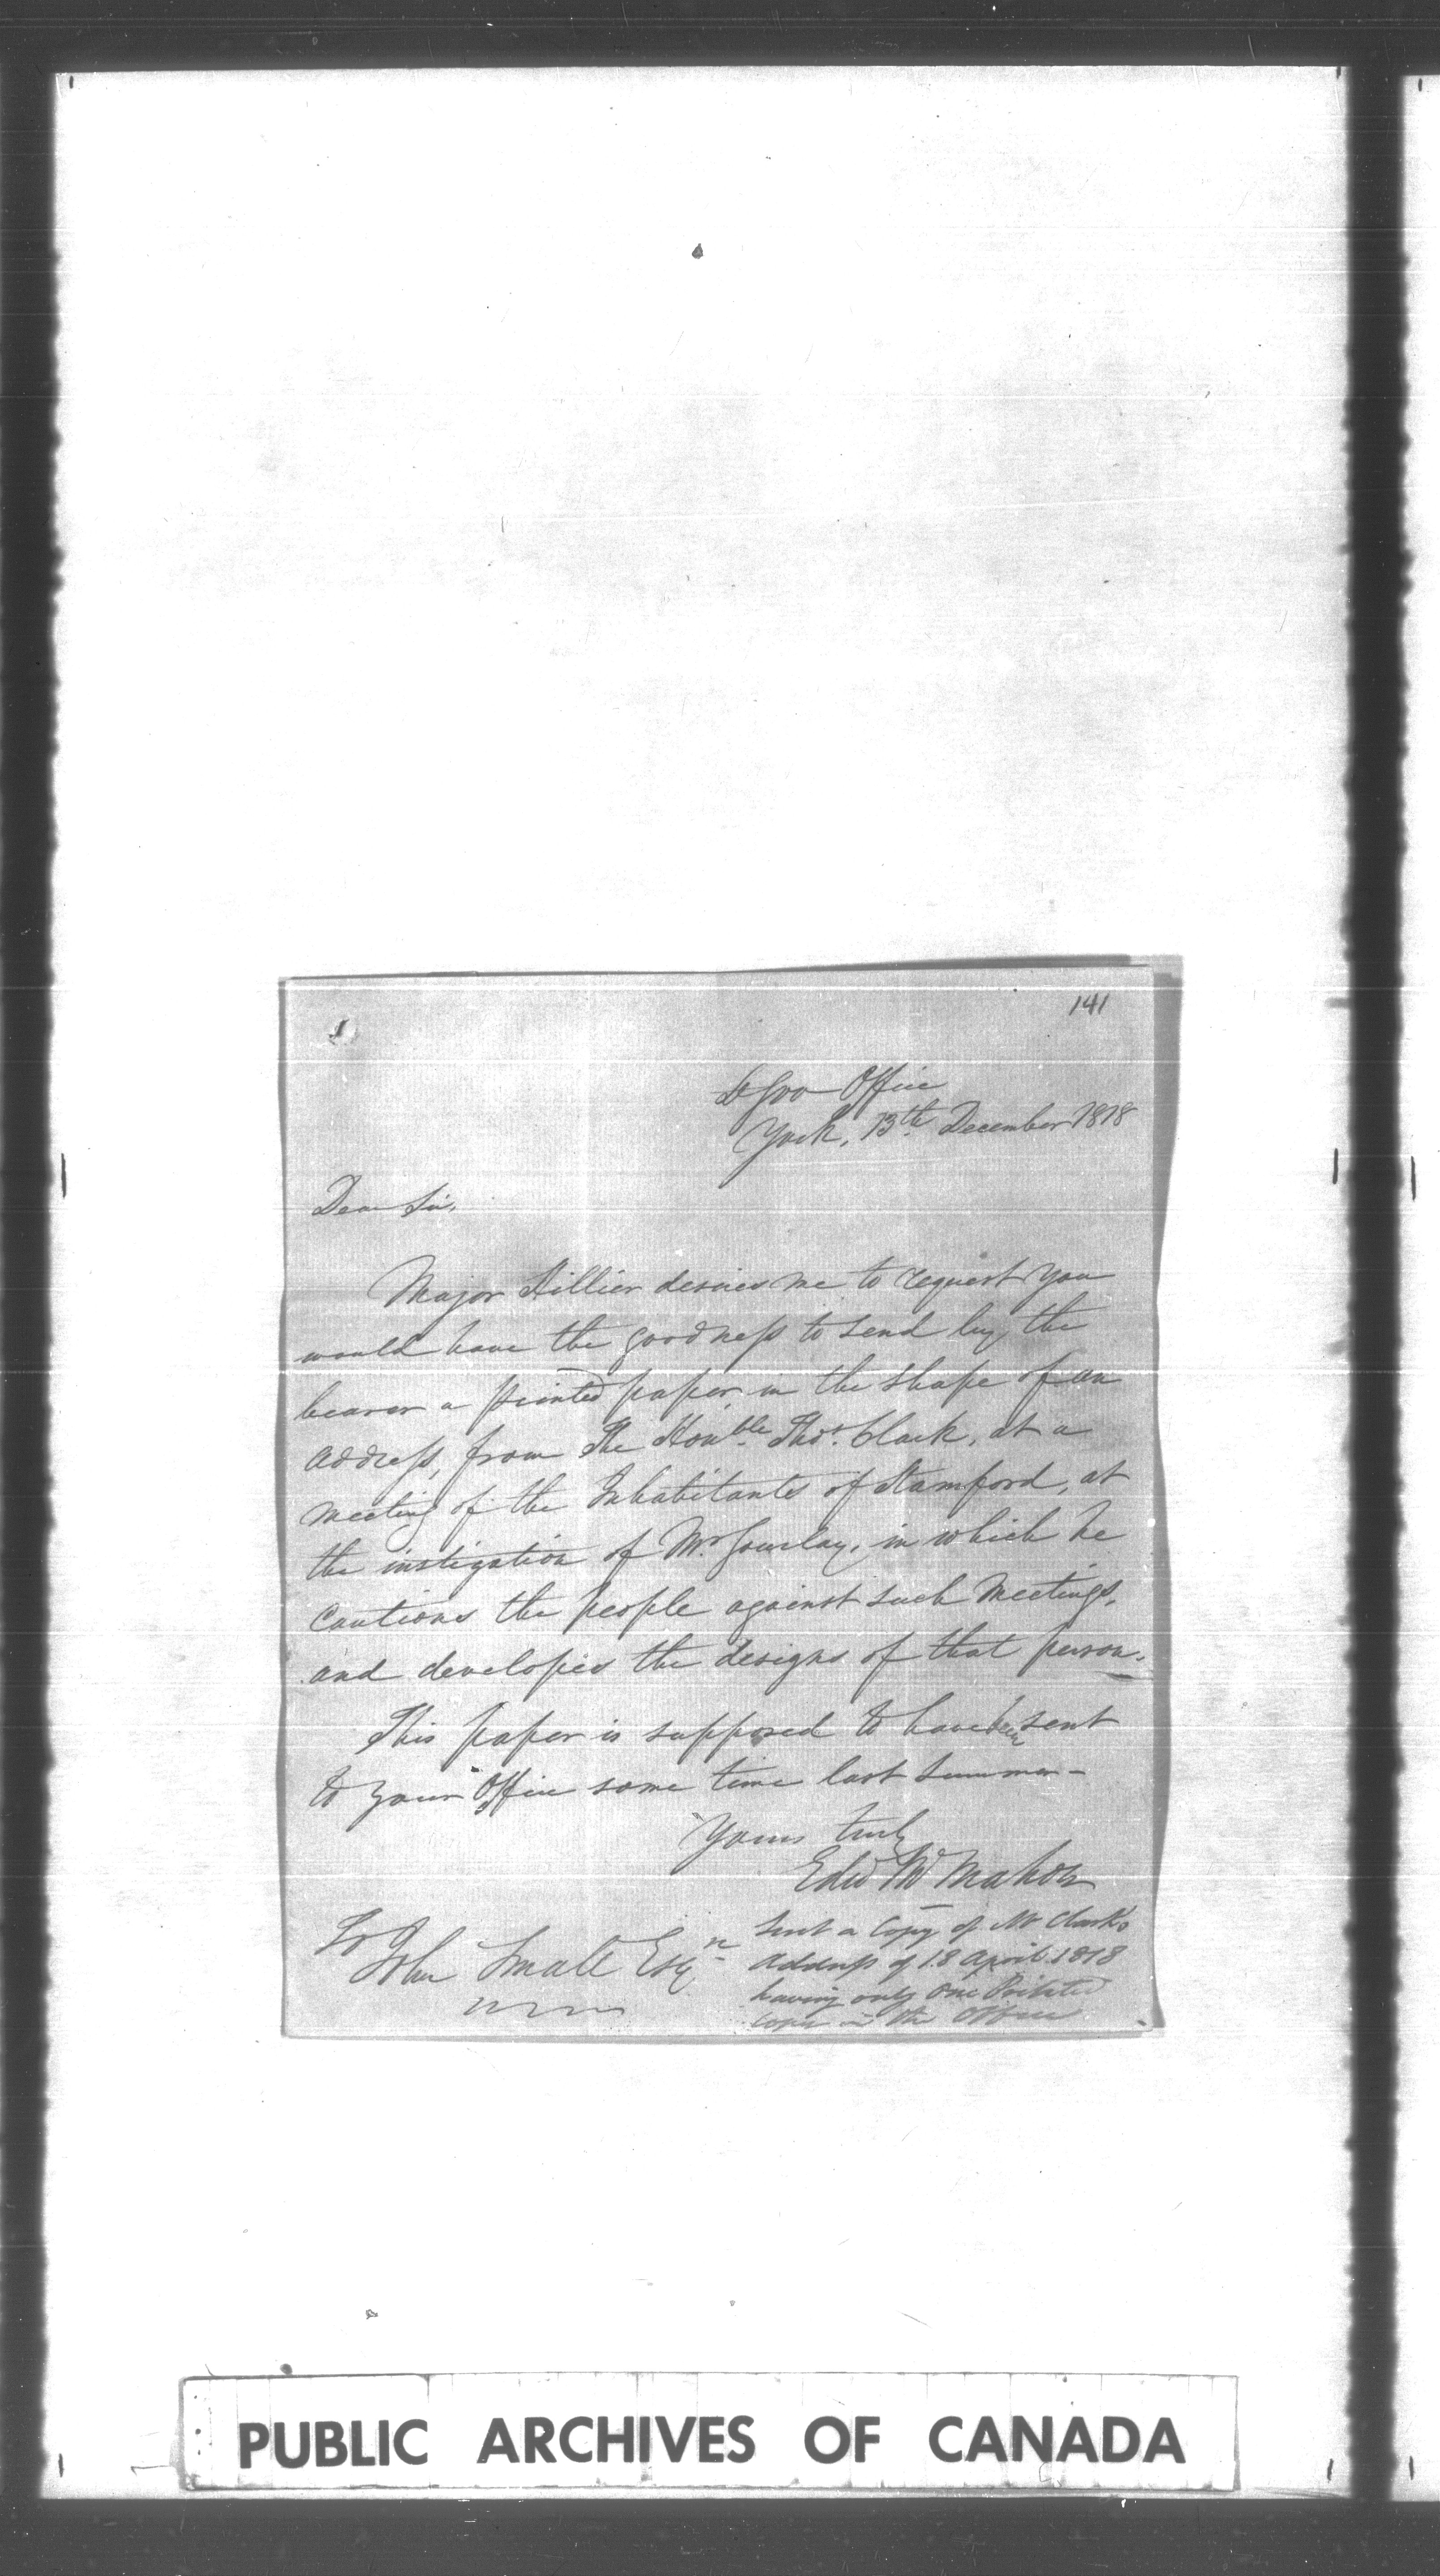 141
Lt Gov Office
York, 13th December 1818
Dear Sir,
Major Hillier desires me to request you
would have the goodness to send by the
bearer a printed paper in the shape of an
address, from The Honble Thos. Clark, at a
meeting of the Inhabitants of Stamford, at
the instigation of Mr Gourlay, in which he
cautions the people against such meetings,
and developes the designs of that person.
This paper is supposed to have been sent
to your Office some time last Summer -
Yours truly
Edw McMahon
To
John Small Esqr
Sent a Copy of Mr Clark's
Address of 18 April 1818
having only one Printed
Copy in the Office
PUBLIC ARCHIVES OF CANADA